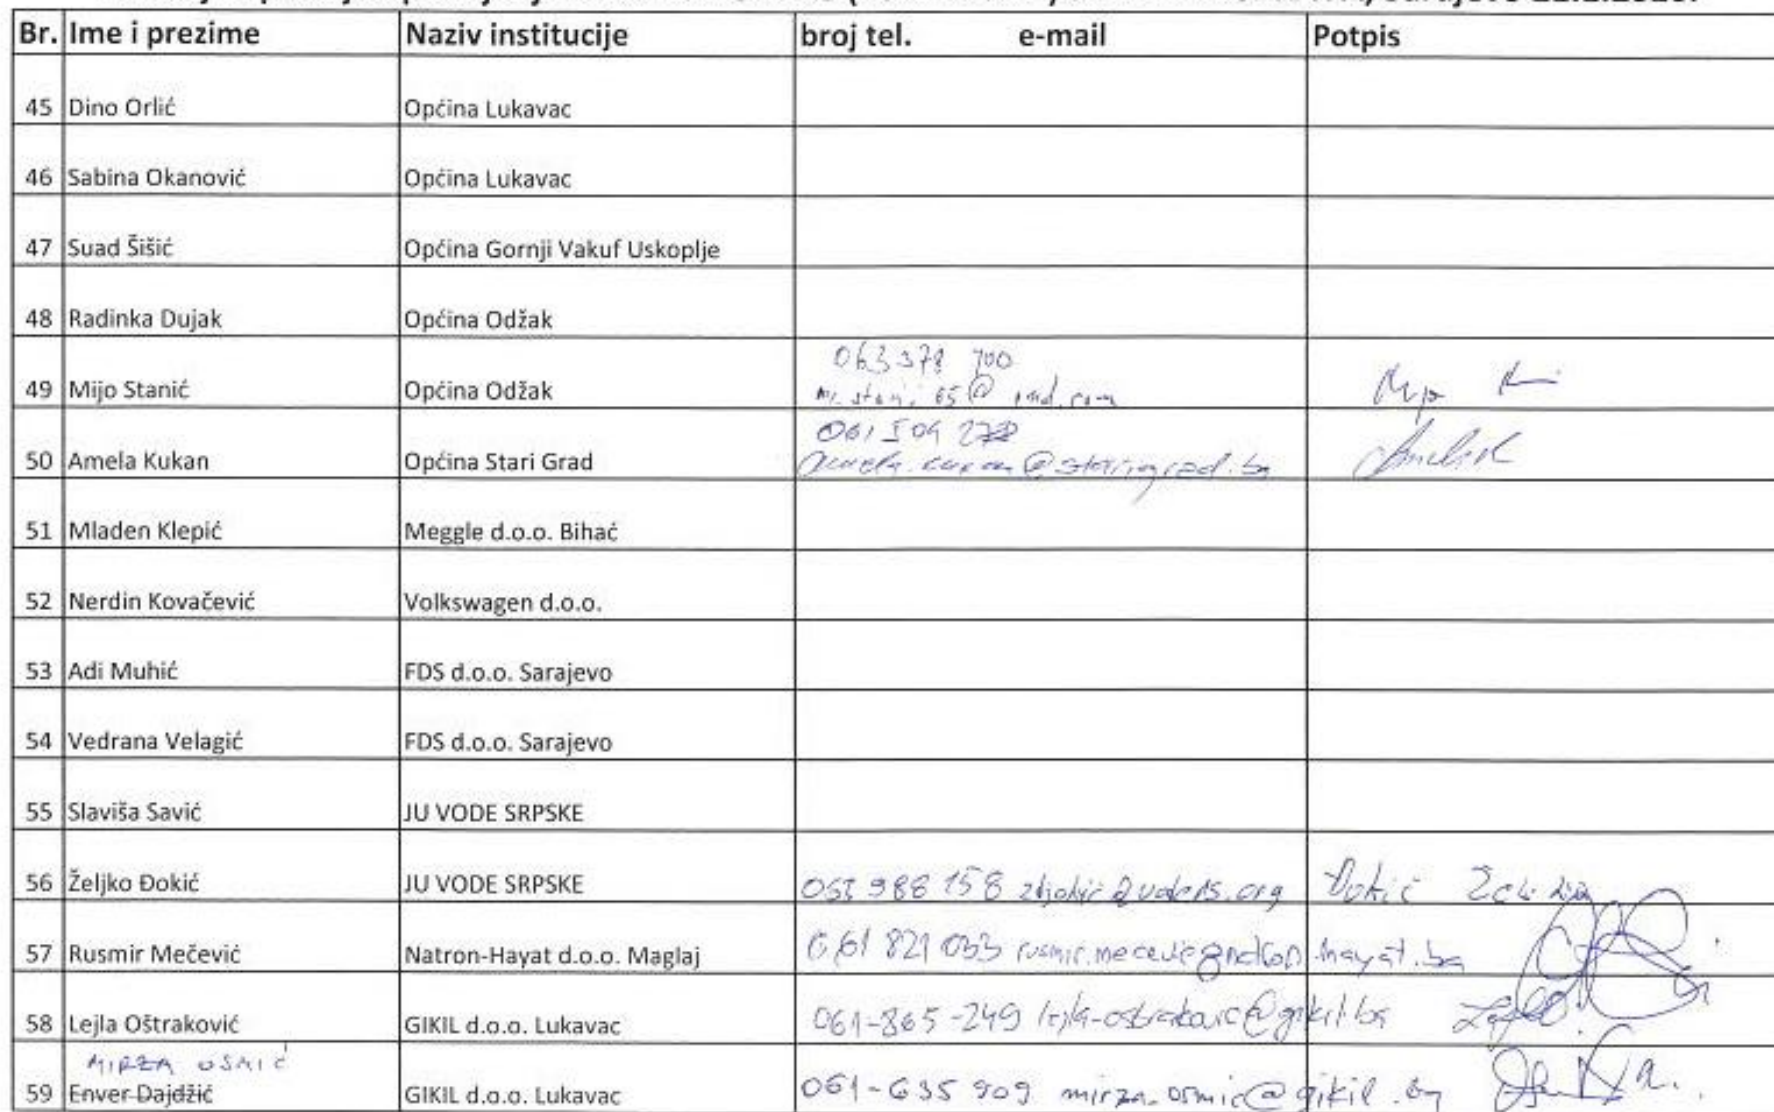 Br. Ime i prezime Naziv institucije broj tel. e-mail Potpis
45 Dino Orlić Općina Lukavac
46 Sabina Okanović Općina Lukavac
47 Suad Šišić Općina Gornji Vakuf Uskoplje
48 Radinka Dujak Općina Odžak
063 378 700
49 Mijo Stanić Općina Odžak
061 509
50 Amela Kukan Općina Stari Grad
51 Mladen Klepić Meggle d.o.o. Bihać
52 Nerdin Kovačević Volkswagen d.o.o.
53 Adi Muhić FDS d.o.o. Sarajevo
54 Vedrana Velagić FDS d.o.o. Sarajevo
55 Slaviša Savić JU VODE SRPSKE
56 Željko Đokić JU VODE SRPSKE 988 158 Đokić
57 Rusmir Mečević Natron-Hayat d.o.o. Maglaj 061 821 033 rusmir.mecevic@natron-hayat.ba
58 Lejla Oštraković GIKIL d.o.o. Lukavac 061-865-249 lejla-ostrakovic@gikil.ba
MIRZA OSMIĆ
59 Enver Dajdžić GIKIL d.o.o. Lukavac 061-635 909 mirza.osmic@gikil.ba